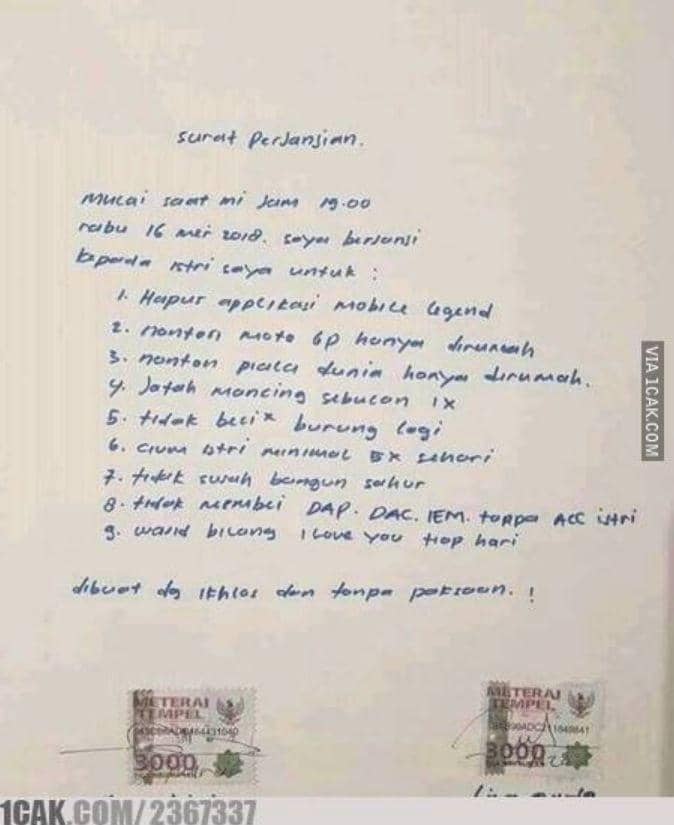 Surat Perjanjian.
Mulai saat ini Jam 19.00
rabu 16 mei 2018. saya berjanji
kepada istri saya untuk :
1. Hapus applikasi Mobile legend
2. nonton moto GP hanya dirumah
3. nonton piala dunia hanya dirumah.
4. Jatah mancing sebulan 1x
5. tidak beli" burung lagi
6. cium istri minimal 5x sehari
7. tidak susah bangun sahur
8. tidak membeli DAP. DAC. IEM. tanpa ACC istri
9. wajib bilang I Love You tiap hari
dibuat dg ikhlas dan tanpa paksaan. !
METERAI
TEMPEL
3000
METERAI
TEMPEL
3000
VIA 1CAK.COM
1CAK.COM/2367337